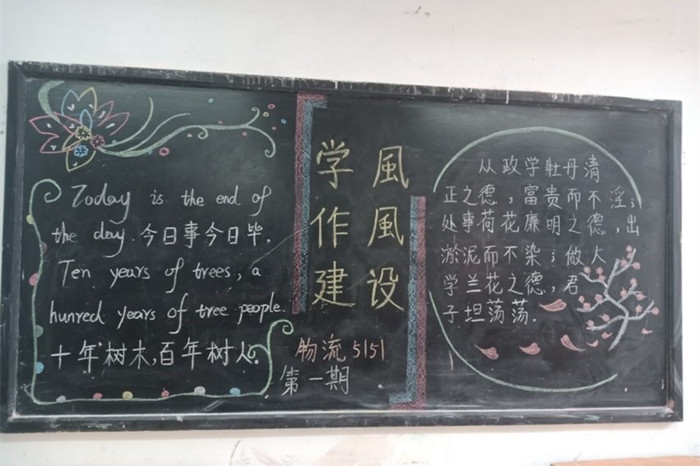 Today is the end of
the day. 今日事今日毕.
Ten years of trees, a
hunred years of tree people.
十年树木,百年树人.
学風
作風
建设
物流5151
第一期
从政学牡丹清
正之德,富贵而不淫;
处事荷花廉明之德,出
淤泥而不染;做人
学兰花之德,君
子坦荡荡.